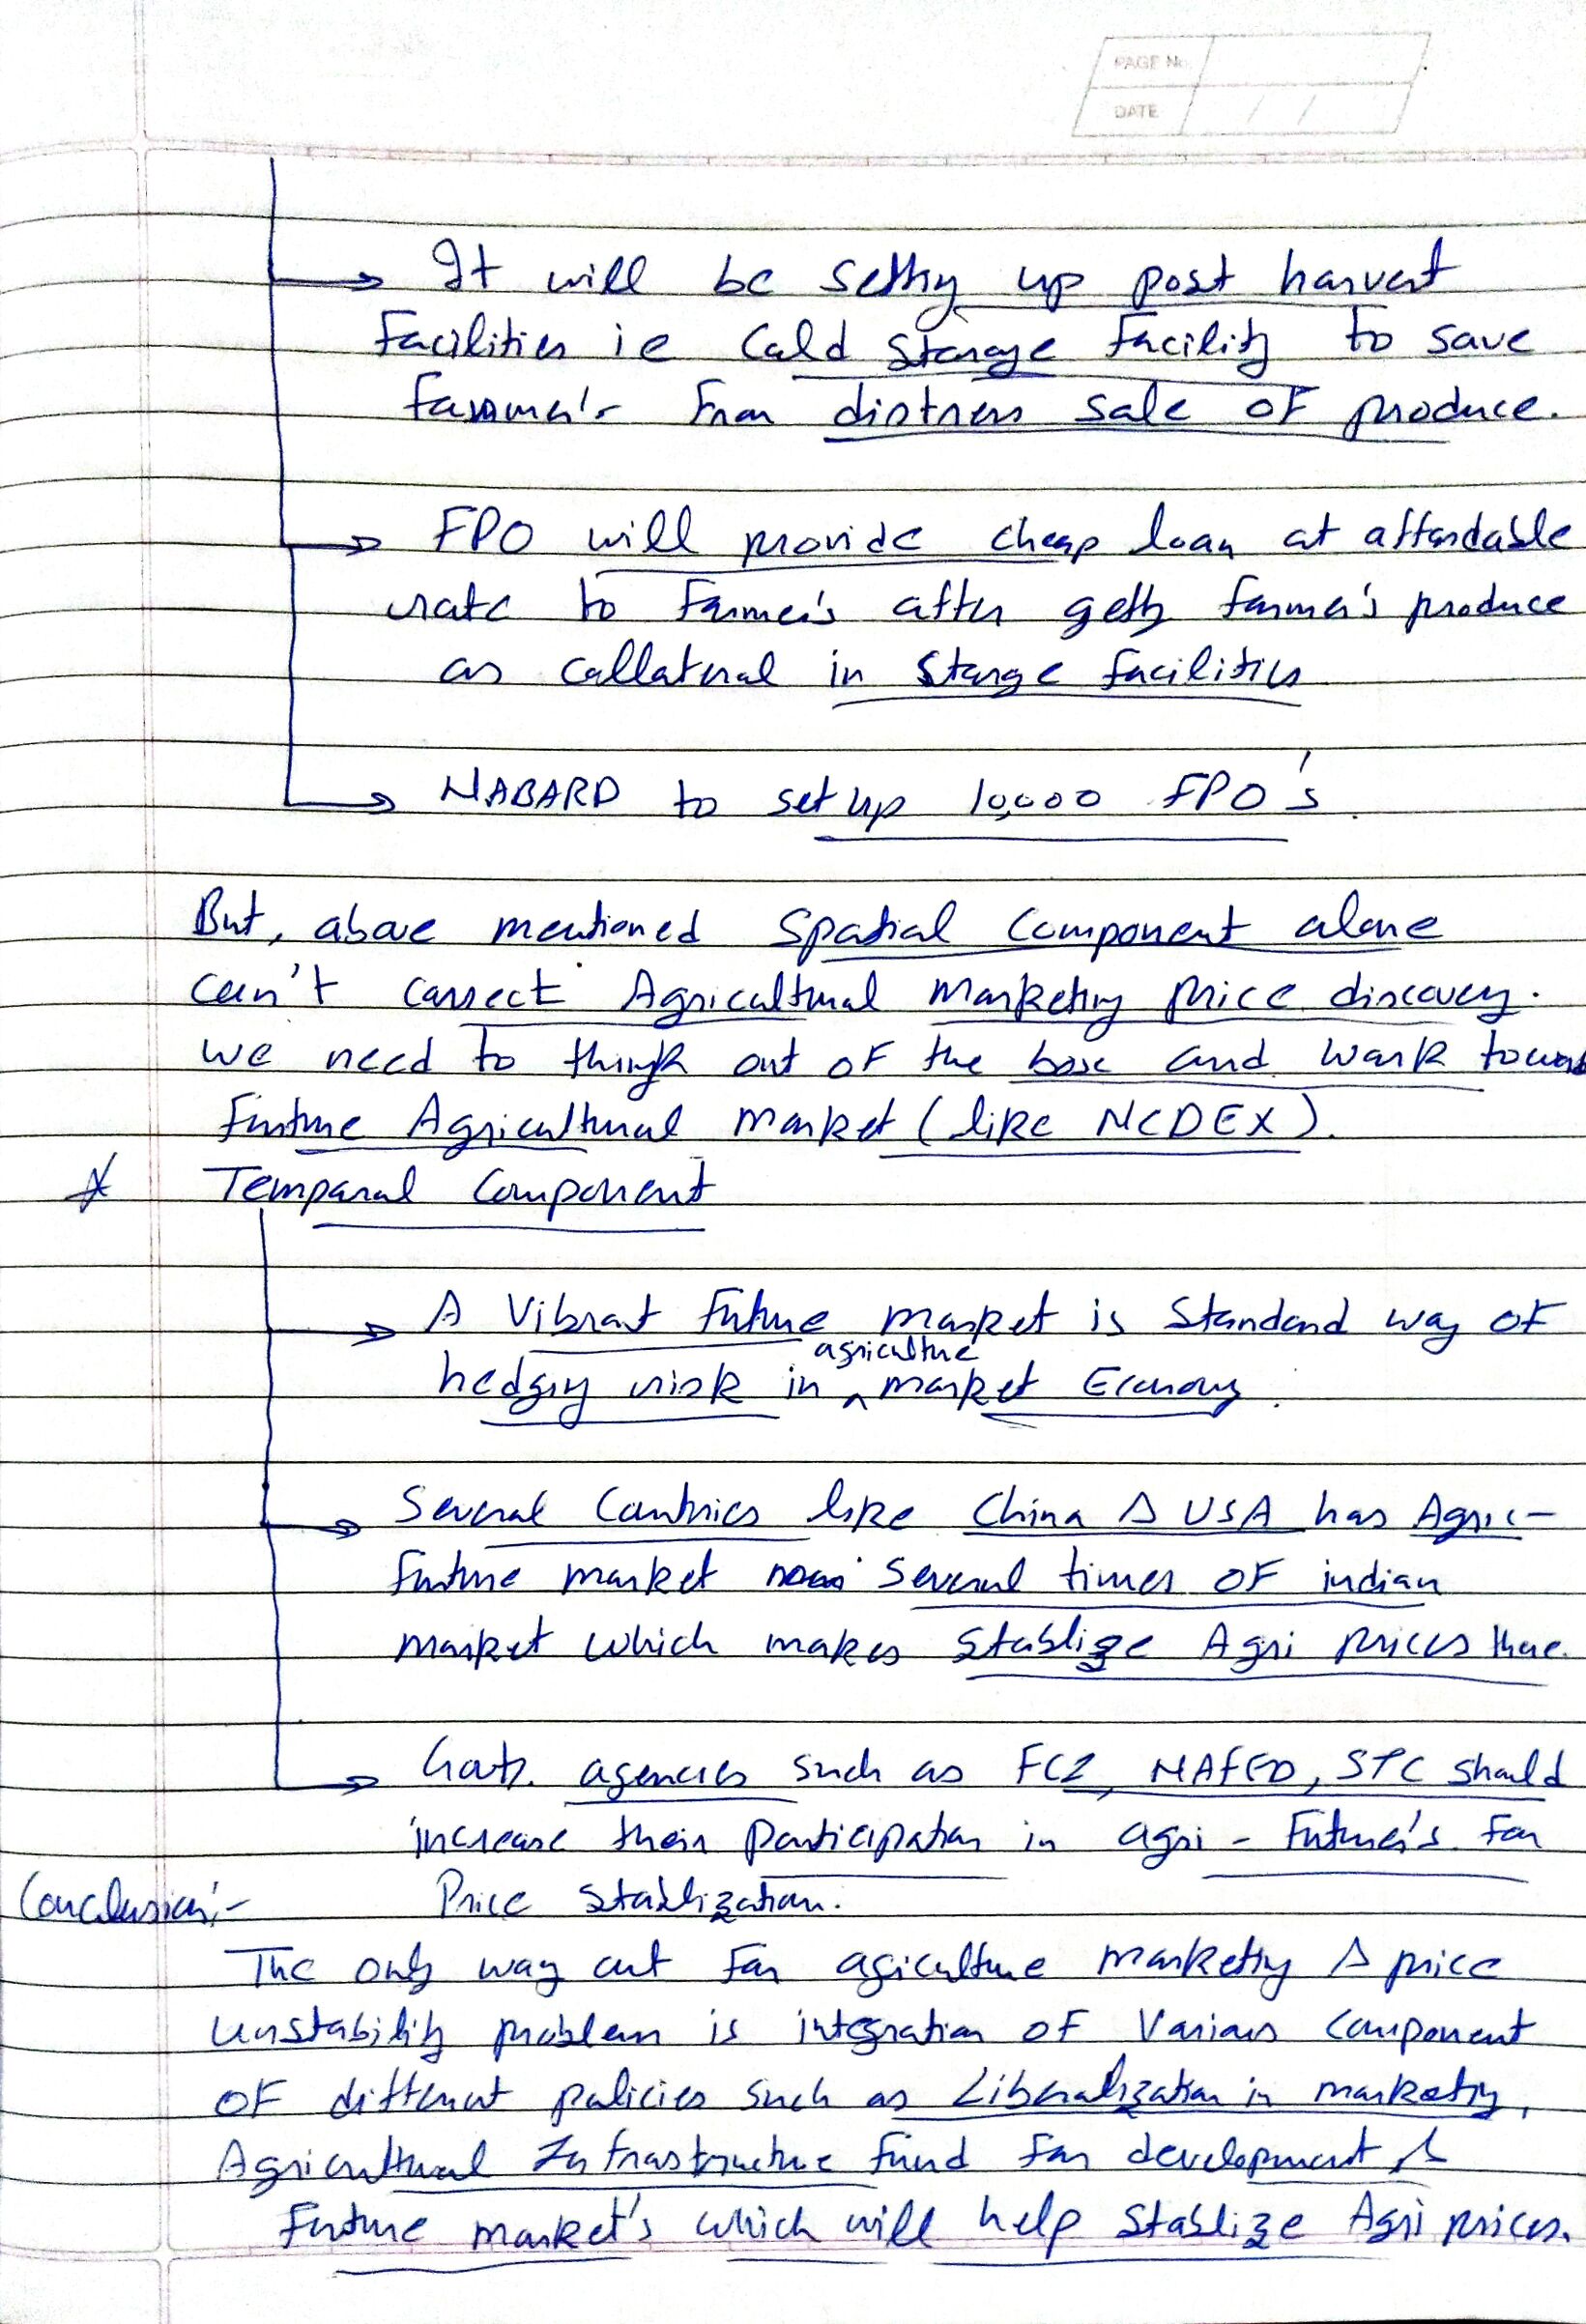 PAGE No.
DATE / /
It will be setting up post harvest
Facilities ie Cold Storage Facility to save
farmer's from distress sale of produce.
FPO will provide cheap loan at affordable
rate to Farmer's after getting farmer's produce
as collateral in storage facilities
NABARD to set up 10,000 FPO's.
But, above mentioned Spatial Component alone
can't correct Agricultural Marketing price discovery.
we need to think out of the box and work toward
Future Agricultural Market (like NCDEX).
* Temporal Component
A Vibrant Future market is Standard way of
agriculture
hedging risk in ^ market Economy.
Several Countries like China & USA has Agric-
future market several times of indian
market which makes stablize Agri prices there.
Govt. agencies such as FCI, NAFED, STC should
increase their participation in agri - Future's for
Conclusion:- Price stablization.
The only way out for agiculture marketing & price
unstability problem is integration of Various Component
of different policies such as Liberalization in marketing,
Agricultural Infrastructure Fund for development &
Future market's which will help Stablize Agri prices.